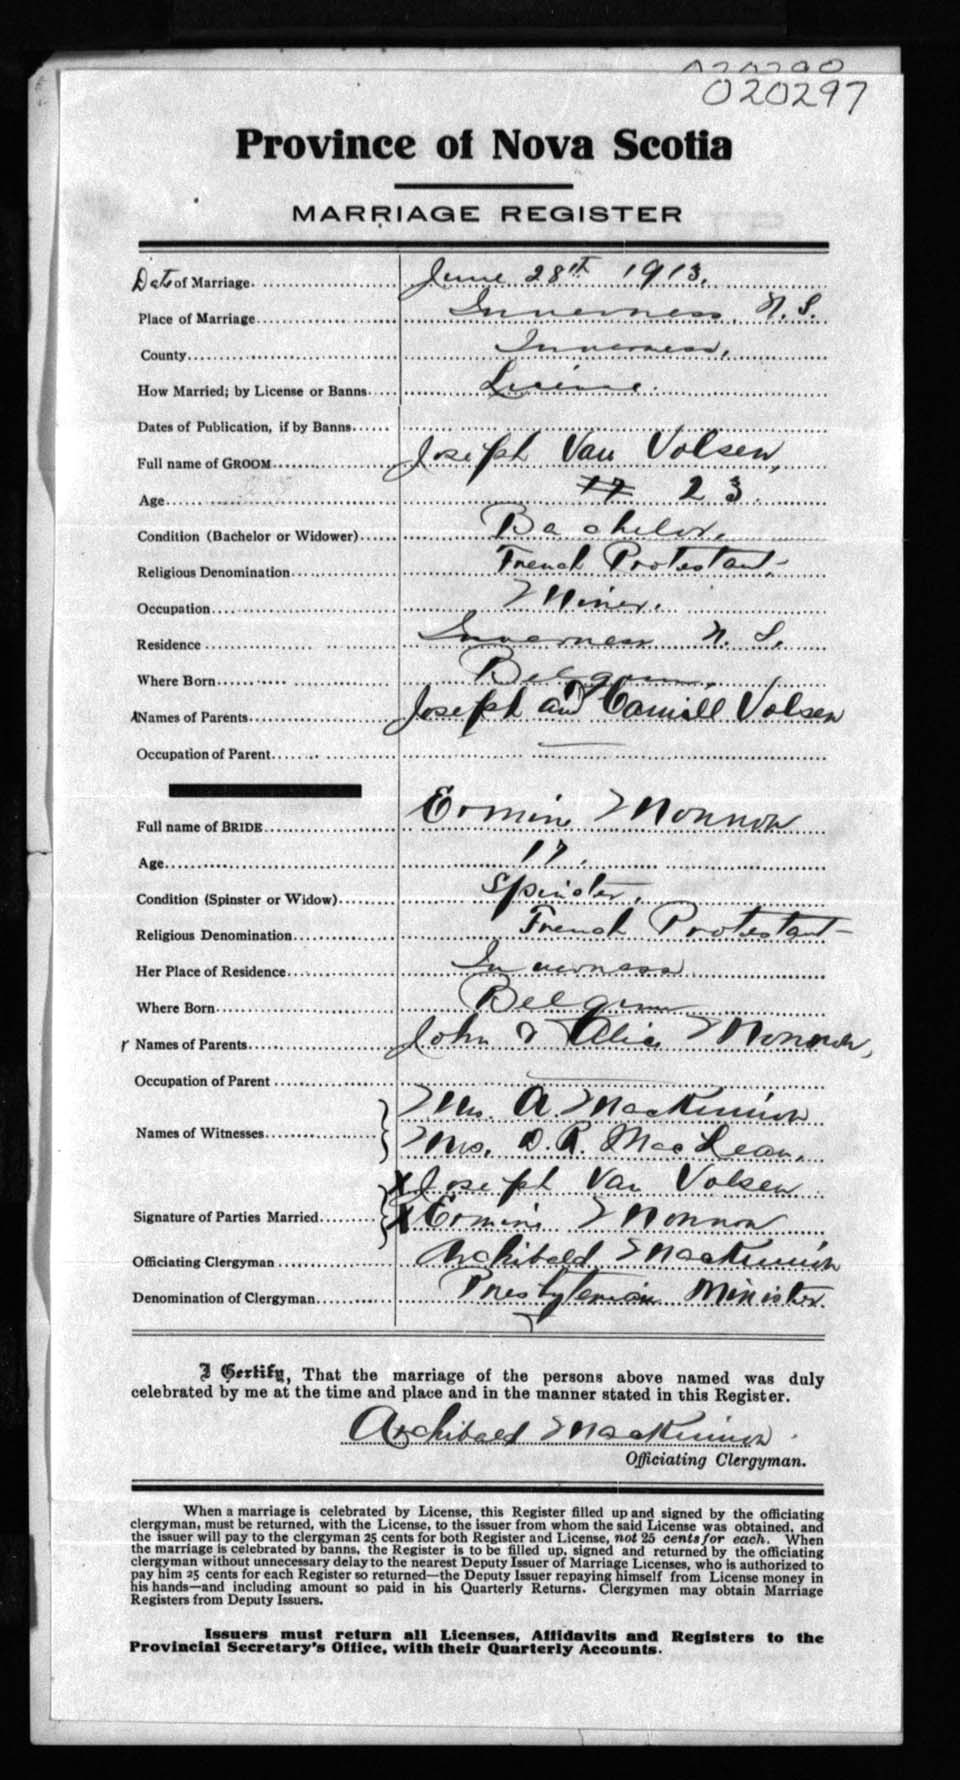 020297
Province of Nova Scotia
MARRIAGE REGISTER
Date of Marriage. June 28th 1913.
Place of Marriage Inverness, N. S.
County Inverness,
How Married; by License or Banns License.
Dates of Publication, if by Banns
Full name of GROOM Joseph Van Volsen,
Age 17 23.
Condition (Bachelor or Widower) Bachelor,
Religious Denomination French Protestant,
Occupation Miner.
Residence Inverness N. S.
Where Born Belgium,
Names of Parents Joseph and Camill Volsen
Occupation of Parent
Full name of BRIDE Ermine Monnon
Age 17.
Condition (Spinster or Widow) Spinster,
Religious Denomination French Protestant
Her Place of Residence Inverness
Where Born Belgium
Names of Parents John & Alice Monnon,
Occupation of Parent
Names of Witnesses Mrs. A. MacKinnon
Mrs. D. R. MacLean,
X Joseph Van Volsen
Signature of Parties Married X Ermine Monnon
Officiating Clergyman Archibald MacKinnon
Denomination of Clergyman Presbyterian Minister.
I Certify, That the marriage of the persons above named was duly
celebrated by me at the time and place and in the manner stated in this Register.
Archibald MacKinnon
Officiating Clergyman.
When a marriage is celebrated by License, this Register filled up and signed by the officiating
clergyman, must be returned, with the License, to the issuer from whom the said License was obtained, and
the issuer will pay to the clergyman 25 cents for both Register and License, not 25 cents for each. When
the marriage is celebrated by banns, the Register is to be filled up, signed and returned by the officiating
clergyman without unnecessary delay to the nearest Deputy Issuer of Marriage Licenses, who is authorized to
pay him 25 cents for each Register so returned—the Deputy Issuer repaying himself from License money in
his hands—and including amount so paid in his Quarterly Returns. Clergymen may obtain Marriage
Registers from Deputy Issuers.
Issuers must return all Licenses, Affidavits and Registers to the
Provincial Secretary's Office, with their Quarterly Accounts.